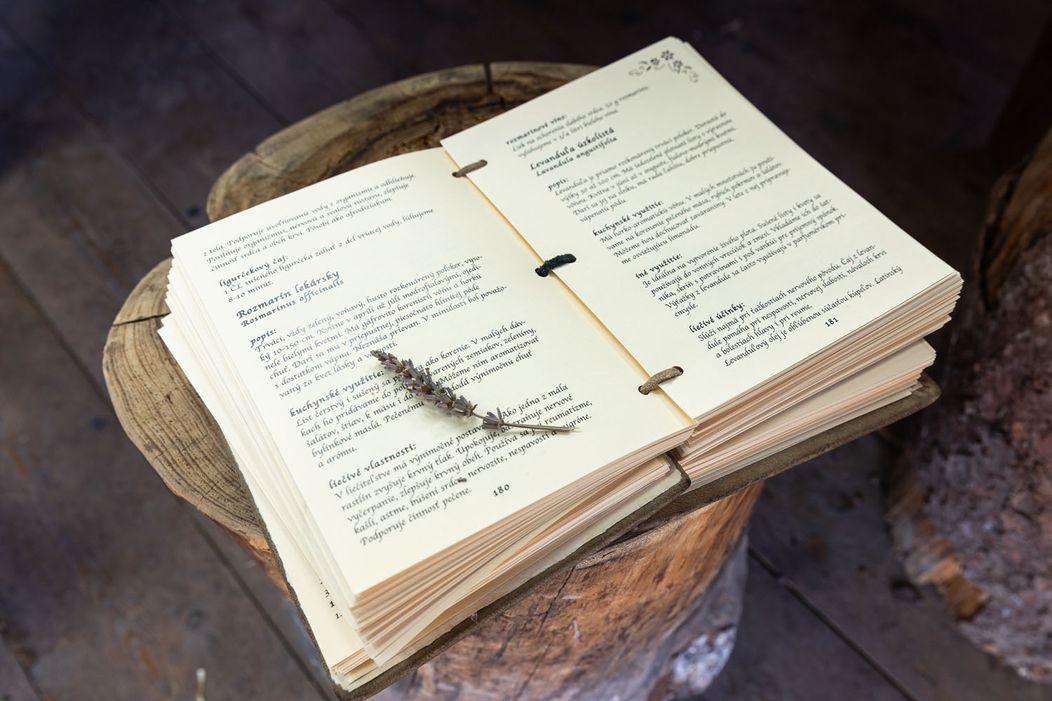 z tela. Podporuje uvoľňovanie vody z organizmu a odhlieňuje.
Posilňuje organizmus, nervovú a svalovú sústavu, zlepšuje
činnosť srdca a obeh krvi. Pôsobí ako afrodiziakum.
ligurčekový čaj:
1 ČL sušeného ligurčeka zaliať 2 dcl vriacej vody, lúhujeme
8-10 minút.
Rozmarín lekársky
Rosmarinus officinalis
popis:
Trváci, vždy zelený, voňavý, husto rozkonárený poloker, vyso-
ký 10-150 cm. Kvitne v apríli až júli modrofialovými, ojedi-
nele bielymi kvetmi. Má gáfrovito korenistú vôňu a horkú
chuť. Darí sa mu v priepustnej, piesočnato hlinitej pôde
s dostatkom vápna. Neznáša prievan. V minulosti bol považo-
vaný za kvet lásky a vernosti.
kuchynské využitie:
List čerstvý i sušený sa ako korenie. V malých dáv-
kach ho pridávame do varených zemiakov, zeleniny,
šalátov, štiav, k mäsu i do Môžeme ním aromatizovať
bylinkové maslá. Pečenému dodá výnimočnú chuť
a arómu.
liečivé vlastnosti:
V liečiteľstve má výnimočné Ako jedna z mála
rastlín zvyšuje krvný tlak. Upokojuje, nervové
vyčerpanie, zlepšuje krvný obeh. Používa sa pri reumatizme,
kašli, astme, búšení srdca, nervozite, nespavosti a migréne.
Podporuje činnosť pečene.
180
rozmarínové víno:
Liek na ochorenia slabého srdca. 50 g rozmarínu
vylúhujeme v 3/4 litri bieleho vína.
Levanduľa úzkolistá
Lavandula angustifolia
popis:
Levanduľa je priamo rozkonárený trváci poloker. Dorastá do
výšky 30 až 100 cm. Má šedozelené plstnaté listy s výraznou
vôňou. Kvitne v júni až v auguste, fialovo modrými kvetmi.
Darí sa jej na slnku, má rada ľahšiu, dobre priepustnú,
vápenatú pôdu.
kuchynské využitie:
Má horko-aromatickú vôňu. V malých množstvách ju použí-
vame na korenenie pečeného mäsa, rybích pokrmov a šalátov.
Môžeme ňou dochucovať zaváraniny. V lete z nej pripravuje-
me osviežujúcu limonádu.
iné využitie:
Je ideálna na vytvorenie živého plotu. Sušené listy i kvety sa
používajú do vonných vreciek a zmesí. Vkladáme ich do šat-
níka, skríň s potravinami i pod vankúš pre príjemný spánok.
Výťažky z levandule sa často využívajú v parfumérskom pri-
emysle.
liečivé účinky:
Slúži najmä pri ťažkostiach nervového pôvodu. Čaj z levan-
dule pomáha pri nespavosti, nervovej slabosti, návaloch krvi
a bolestiach hlavy i pri reume.
Levanduľový olej je obľúbenou súčasťou kúpeľov. Latinský
181